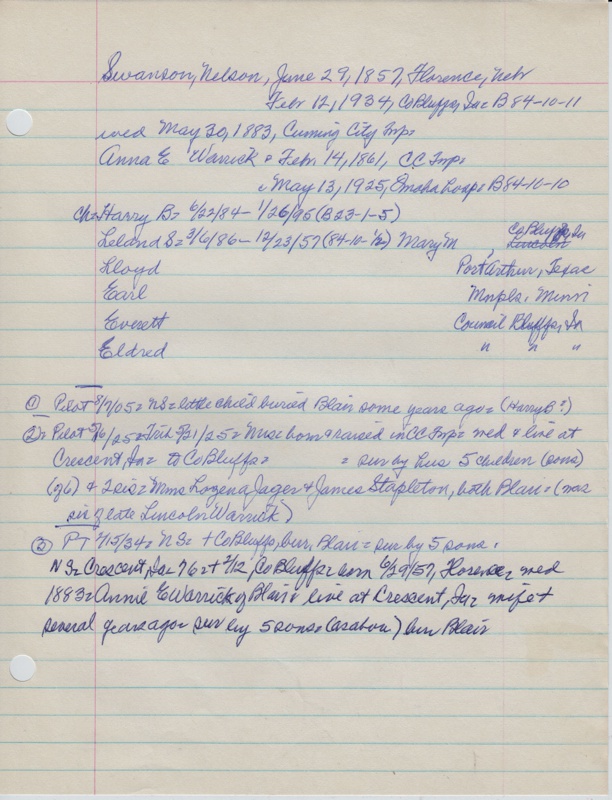 Swanson, Nelson, June 29, 1857, Florence, Nebr
Febr 12, 1934, Co Bluffs, Ia= B 84-10-11
wed May 30, 1883, Cuming City Twp=
Anna E Warrick = Febr. 14, 1861, C.C. Twp=
May 13, 1925, Omaha hosp= B 84-10-10
ch= Harry B= 6/22/84- 1/26/95 (B 23-1-5)
Leland S= 3/6/86- 12/23/57 (84-10-1/2) Mary M , Co Bluffs, Ia
Lloyd Port Arthur, Texas
Earl Mnpls, Minn
Everett Council Bluffs, Ia
Eldred " " "
① Pilot 8/7/05= NS= little child buried Blair some years ago= (Harry B?)
②= Pilot 5/6/25= Trib 5/21/25= Mrs= born & raised in CC Twp= wed & live at
Crescent, Ia= to Co Bluffs= = sur by hus 5 children (sons)
(of 6) & 2 sis= Mrms Lozena Jager & James Stapleton, both Blair= (was
sis of late Lincoln Warrick)
③ PT 2/15/34= NS= + Co Bluffs, bur, Blair= sur by 5 sons=
NS= Crescent, Ia= 76= + 2/12, Co Bluffs= born 6/29/57, Florence= wed
1883= Annie E Warrick of Blair & live at Crescent, Ia= wife +
several years ago= sur by 5 sons= (as above) bur Blair